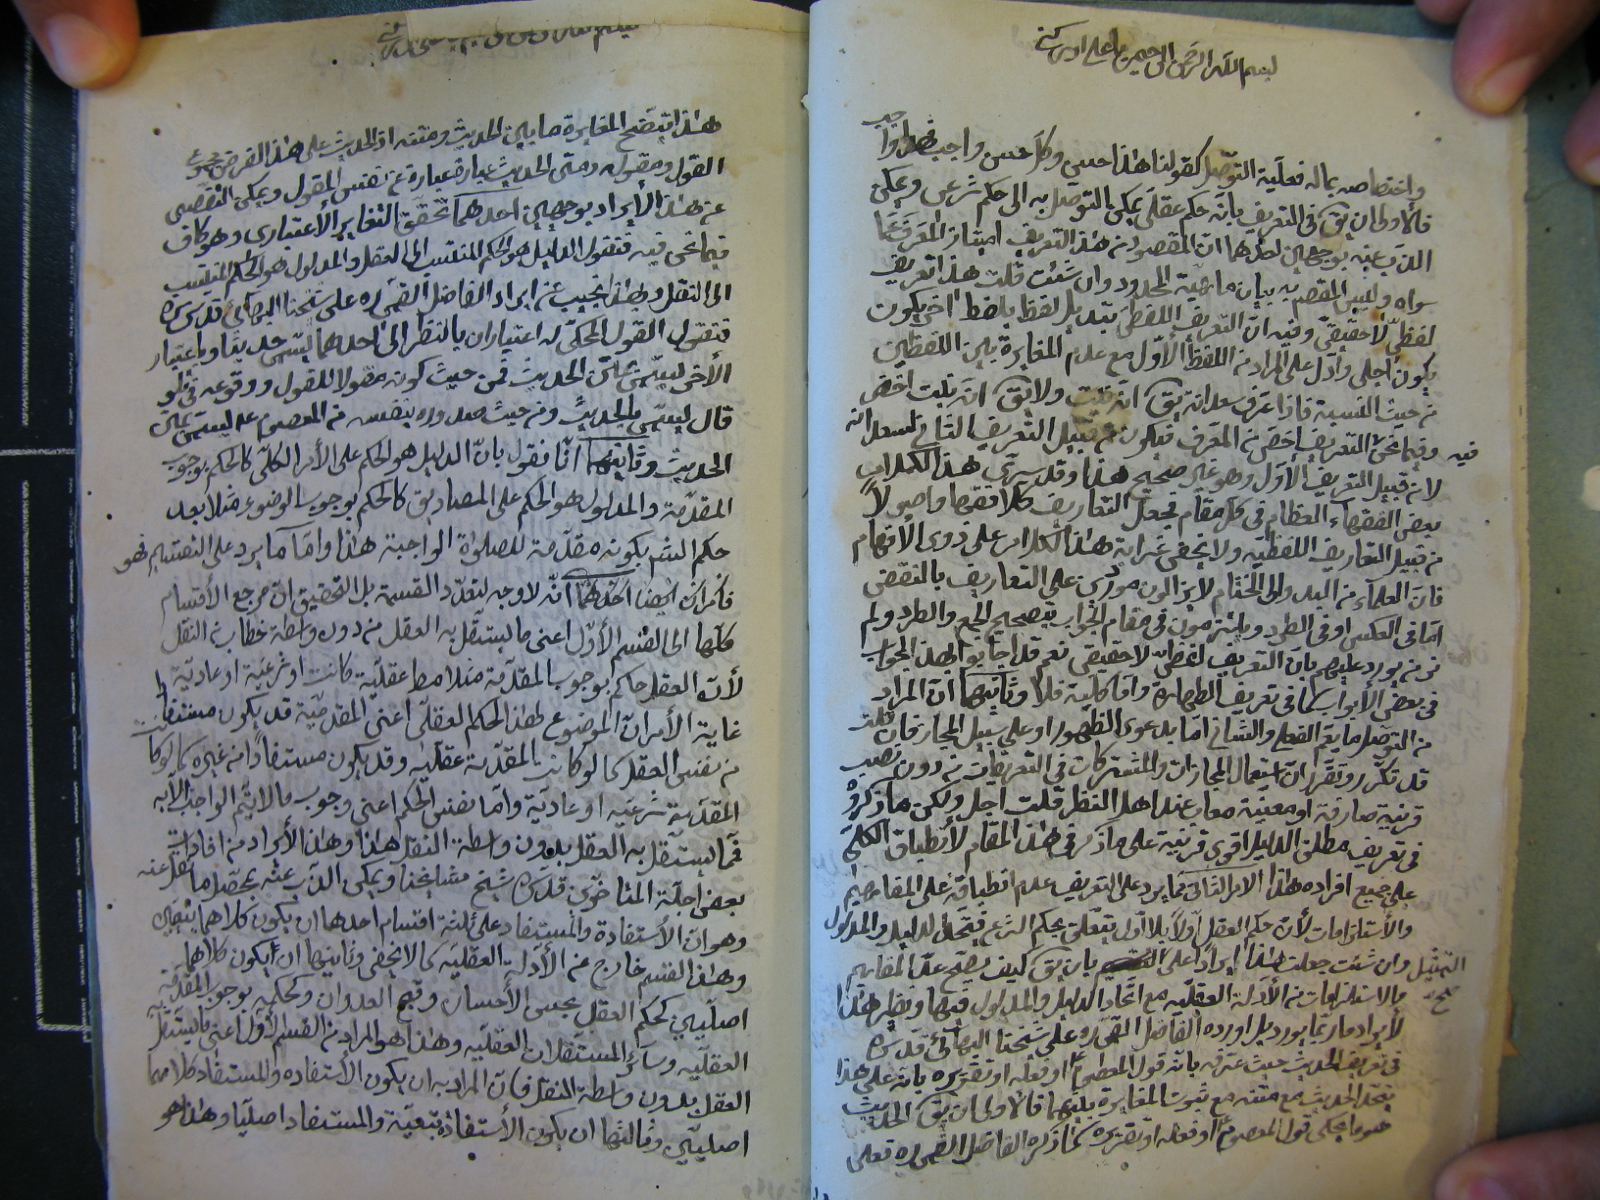 بسم الله الرحمن الرحيم يا علي ادركني
واختصاصه بما له فعلية التوصل كقولنا هذا حسن وكل حسن واجب فهذا واجب
فالأولى ان يق في التعريف بانه حكم عقلي يمكن التوصل به الى حكم شرعي ويمكن
الذب عنه بوجهين احدهما ان المقصود من هذا التعريف امتياز المعرف عما
سواه وليس المقصود به بيان ماهية المحدود وان شئت قلت هذا تعريف
لفظي لا حقيقي وفيه ان التعريف اللفظي تبديل لفظ بلفظ اخر يكون
يكون اجلى وادل على المراد من اللفظ الأول مع عدم المغايرة بين اللفظين
من حيث النسبة فاذا عرف سعدانة يق انه نبت ولا يق انه نبت اخص
فيه وفيما نحن التعريف اخص من المعرف فيكون من قبيل التعريف الثاني لسعدانة
لا من قبيل التعريف الأول وهو غير صحيح هذا وقد سرى هذا الكلام
بعض الفقهاء العظام في كل مقام فجعل التعاريف كلا فقها واصولاً
من قبيل التعاريف اللفظية ولا يخفى غرابة هذا الكلام على ذوى الأفهام
فان العلماء من البدو الى الختام لا يزالون موردين على التعاريف بالنقض
اما في العكس او في الطرد ويلتزمون في مقام الجواب بتصحيح الجمع والطرد ولم
نر من يورد عليهم بان التعريف لفظي لا حقيقي نعم قد اجابوا بهذا الجواب
في بعض الأبواب كما في تعريف الطهارة واما كلية فلا وثانيهما ان المراد
من التوصل ما يعم الفعلي والشاني اما بدعوى الظهور او على سبيل المجاز فان قلت
قد تكرر وتقرر ان استعمال المجازات والمشتركات في التعريفات من دون نصب
قرينة صارفة او معينة معاب عند اهل النظر قلت اجل ولكن ما ذكروه
في تعريف مطلق الدليل اقوى قرينة على ما ذكر في هذا المقام لانطباق الكلي
على جميع افراده هذا الامر الثاني فيما يرد على التعريف عدم انطباقه على المفاهيم
والأستلزامات لأن حكم العقل اولاً بلا اول يتعلق بحكم الشرع فيتحد الدليل والمدلول
وان شئت جعلت هذا ايراداً على التمثيل بان يق كيف يصح عد المفاهيم
والاستلزامات من الأدلة العقلية مع اتحاد الدليل والمدلول فيها ونظير هذا
الأيراد ما ربما يورد بل اورده الفاضل القمى ره على شيخنا البهائي قدس سره
في تعريف الحديث حيث عرفه بانه قول المعصوم ع او فعله او تقريره بانه على هذا
يتحد الحديث مع متنه مع ثبوت المغايرة بينهما فالأولى ان يق الحديث
هو ما يحكى قول المعصوم ع او فعله او تقريره كما ذكره الفاضل القمى ره فعلى
هذا يتضح المغايرة ما بين الحديث ومتنه اذ الحديث على هذا الفرض
القول ومقوله ومتن الحديث عبارة عن نفس المقول ويمكن التفصى
عن هذا الأيراد بوجهين احدهما تحقق التغاير الأعتباري وهو كاف
فيما نحن فيه فنقول الدليل هو الحكم المنتسب الى العقل والمدلول هو الحكم المنتسب
الى النقل وبهذا نجيب عن ايراد الفاضل القمى ره على شيخنا البهائي قدس سره
فنقول القول المحكى له اعتباران بالنظر الى احدهما يسمى حديثا وباعتبار
الأخر يسمى متن الحديث فمن حيث كونه مقولا للقول ووقوعه في تلو
قال يسمى بالحديث ومن حيث صدوره بنفسه من المعصوم ع يسمى بمتن
الحديث وثانيهما انا نقول بان الدليل هو الحكم على الأمر الكلي كالحكم بوجوب
المقدمة والمدلول هو الحكم على المصاديق كالحكم بوجوب الوضوء مثلا بعد
حكم الشرع بكونه مقدمة للصلوة الواجبة هذا واما ما يرد على التقسيم فهو
فأمران ايضا احدهما انه لا وجه لتعدد القسمة بل التحقيق ان مرجع الأقسام
كلها الى القسم الأول اعنى ما يستقل به العقل من دون واسطة خطاب من النقل
لأن العقل حاكم بوجوب المقدمة مثلا مطا عقلية كانت او شرعية او عادية
غاية الأمر ان الموضوع لهذا الحكم العقلي اعنى المقدمية قد يكون مستفادا
من نفس العقل كما لو كانت المقدمة عقلية وقد يكون مستفاداً من غيره كما لو كانت
المقدمة شرعية او عادية واما نفس الحكم اعنى وجوب ما لا يتم الواجب الا به
فما يستقل به العقل بدون واسطة النقل هذا وهذا الأيراد من افادات
بعض اجلة المتأخرين قدس سره شيخ مشايخنا ويمكن الذب عنه بمحصل ما نقل عنه
وهو ان الأستفادة والمستفاد على ثلثة اقسام احدها ان يكون كلاهما تبعيين
وهذا القسم خارج عن الأدلة العقلية كما لا يخفى وثانيها ان يكون كلاهما
اصليين كحكم العقل بحسن الأحسان وقبح العدوان وكحكمه بوجوب المقدمة
العقلية وسائر المستقلات العقلية وهذا هو المراد من القسم الأول اعنى ما يستقل
العقل بدون واسطة النقل فان المراد به ان يكون الأستفاده والمستفاد كلاهما
اصليين وثالثها ان يكون الأستفادة تبعية والمستفاد اصليا وهذا هو